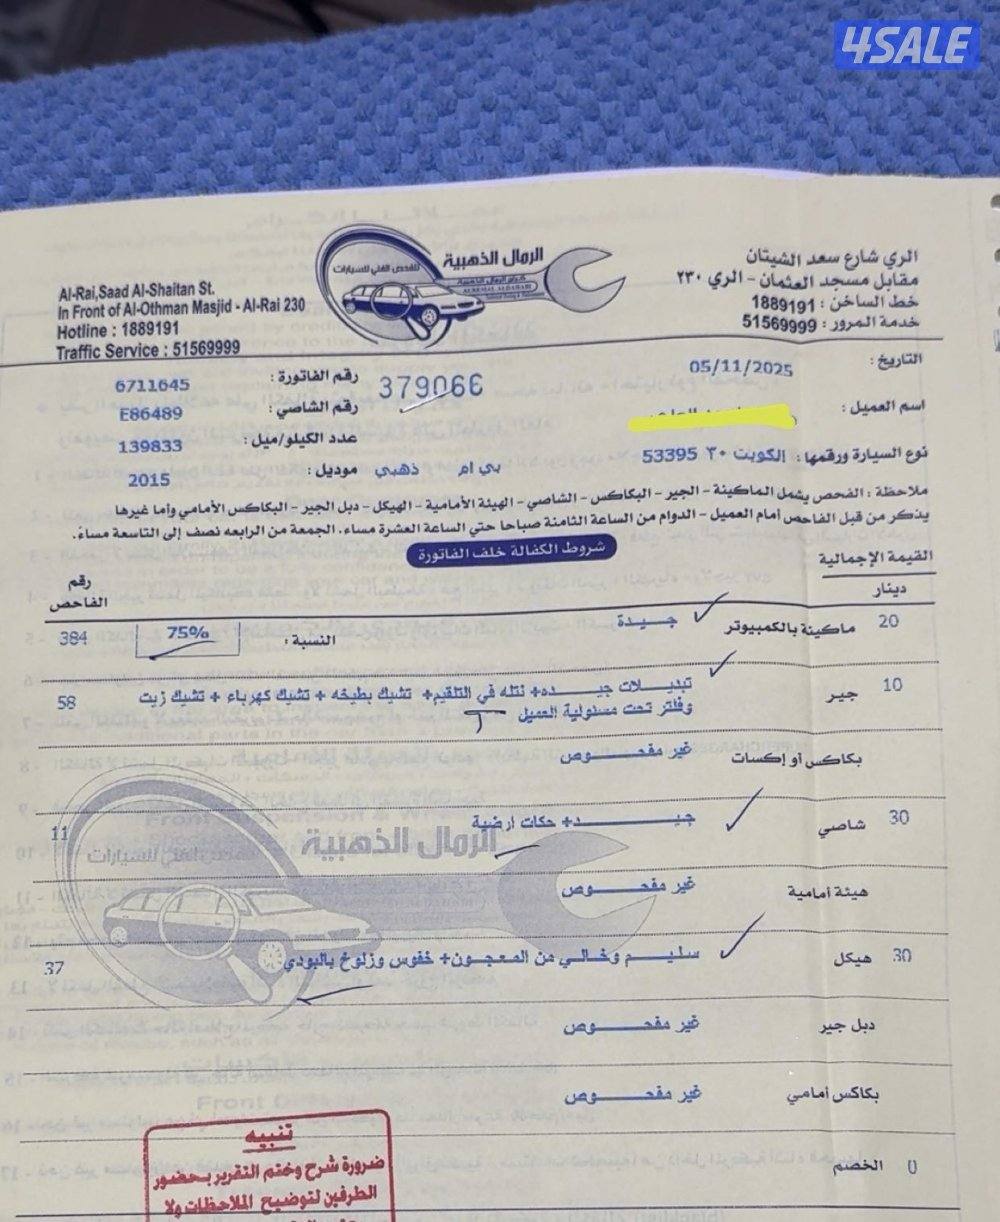 4SALE
الرمال الذهبية
للفحص الفني للسيارات
Al-Rai,Saad Al-Shaitan St.
In Front of Al-Othman Masjid - Al-Rai 230
Hotline : 1889191
Traffic Service : 51569999
الري شارع سعد الشيتان
مقابل مسجد العثمان - الري ٢٣٠
خط الساخن : 1889191
خدمة المرور : 51569999
التاريخ : 05/11/2025
رقم الفاتورة : 6711645
379066
اسم العميل :
رقم الشاصي : E86489
نوع السيارة ورقمها : الكويت ٣٠ 53395
عدد الكيلو/ميل : 139833
بي ام ذهبي
موديل : 2015
ملاحظة : الفحص يشمل الماكينة - الجير - البكاكس - الشاصي - الهيئة الأمامية - الهيكل - دبل الجير - البكاكس الأمامي وأما غيرها
يذكر من قبل الفاحص أمام العميل - الدوام من الساعة الثامنة صباحا حتي الساعة العشرة مساء. الجمعة من الرابعه نصف إلى التاسعة مساء.
شروط الكفالة خلف الفاتورة
القيمة الإجمالية
دينار
رقم الفاحص
20 ماكينة بالكمبيوتر جيدة النسبة : 75% 384
10 جير تبديلات جيده+ نتله في التلقيم+ تشيك بطيخه + تشيك كهرباء + تشيك زيت 58
وفلتر تحت مسئولية العميل
بكاكس أو إكسات غير مفحوص
30 شاصي جيد+ حكات ارضية 11
الرمال الذهبية
هيئة أمامية غير مفحوص
30 هيكل سليم وخالي من المعجون+ خفوس وزلوخ بالبودي 37
دبل جير غير مفحوص
بكاكس أمامي غير مفحوص
0 الخصم
تنبيه
ضرورة شرح وختم التقرير بحضور
الطرفين لتوضيح الملاحظات ولا